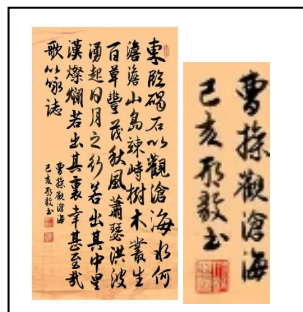 東臨碣石以觀滄海水何
澹澹山島竦峙樹木叢生
百草豐茂秋風蕭瑟洪波
湧起日月之行若出其中星
漢燦爛若出其裏幸甚至哉
歌以詠誌
曹操觀滄海
己亥邢毅书
曹操觀滄海
己亥邢毅书